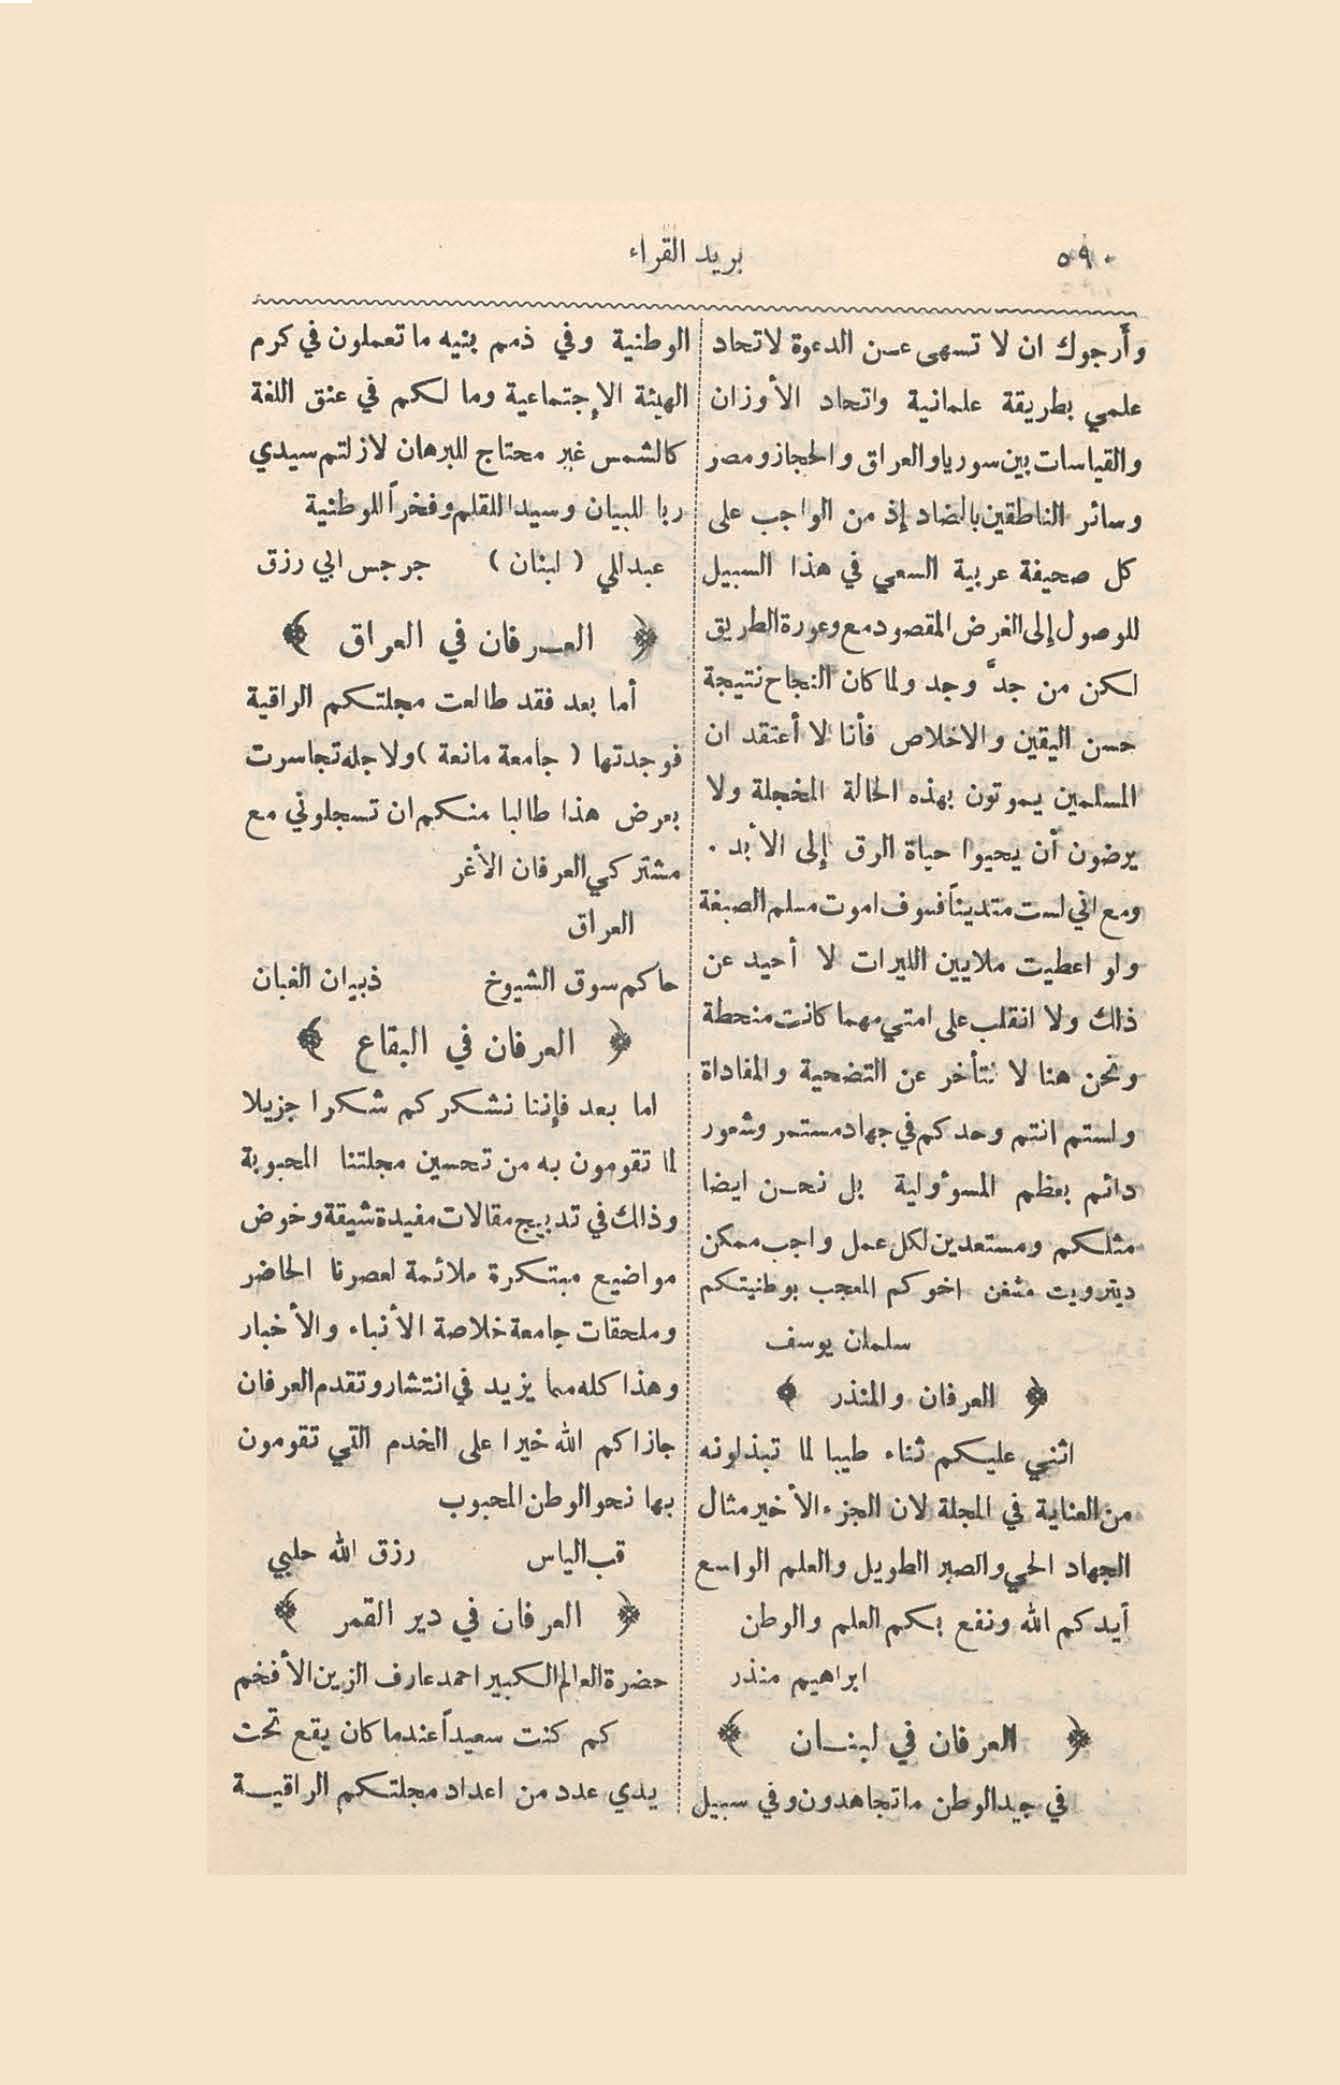 ٥٩٠
بريد القراء
وأرجوك ان لا تسهى عن الدعوة لاتحاد
علمي بطريقة علمانية واتحاد الأوزان
والقياسات بين سوريا والعراق والحجاز ومصر
وسائر الناطقين بالضاد إذ من الواجب على
كل صحيفة عربية السعي في هذا السبيل
للوصول إلى الغرض المقصود مع وعورة الطريق
لكن من جدَّ وجد ولما كان النجاح نتيجة
حسن اليقين والاخلاص فأنا لا أعتقد ان
المسلمين يموتون بهذه الحالة المخجلة ولا
يرضون أن يحيوا حياة الرق إلى الأبد .
ومع اني لست متديناً فسوف اموت مسلم الصبغة
ولو اعطيت ملايين الليرات لا أحيد عن
ذلك ولا انقلب على امتي مهما كانت منحطة
ونحن هنا لا نتأخر عن التضحية والمفاداة
ولستم انتم وحدكم في جهاد مستمر وشعور
دائم بعظم المسوءولية بل نحن ايضا
مثلكم ومستعدين لكل عمل واجب ممكن
ديترويت مشغن اخوكم المعجب بوطنيتكم
سلمان يوسف
﴿ العرفان والمنذر ﴾
اثني عليكم ثناء طيبا لما تبذلونه
من العناية في المجلة لان الجزء الأخير مثال
الجهاد الحي والصبر الطويل والعلم الواسع
أيدكم الله ونفع بكم العلم والوطن
ابراهيم منذر
﴿ العرفان في لبنان ﴾
في جيد الوطن ما تجاهدون وفي سبيل
الوطنية وفي ذمم بنيه ما تعملون في كرم
الهيئة الإجتماعية وما لكم في عنق اللغة
كالشمس غير محتاج للبرهان لازلتم سيدي
ربا للبيان وسيدا للقلم وفخراً للوطنية
عبدللي ( لبنان ) جرجس ابي رزق
﴿ العرفان في العراق ﴾
أما بعد فقد طالعت مجلتكم الراقية
فوجدتها ( جامعة مانعة ) ولاجله تجاسرت
بعرض هذا طالبا منكم ان تسجلوني مع
مشتركي العرفان الأغر
العراق
حاكم سوق الشيوخ ذبيان الغبان
﴿ العرفان في البقاع ﴾
اما بعد فإننا نشكركم شكرا جزيلا
لما تقومون به من تحسين مجلتنا المحبوبة
وذلك في تدبيج مقالات مفيدة شيقة وخوض
مواضيع مبتكرة ملائمة لعصرنا الحاضر
وملحقات جامعة خلاصة الأنباء والأخبار
وهذا كله مما يزيد في انتشار وتقدم العرفان
جازاكم الله خيرا على الخدم التي تقومون
بها نحو الوطن المحبوب
قب الياس رزق الله حلبي
﴿ العرفان في دير القمر ﴾
حضرة العالم الكبير احمد عارف الزين الأفخم
كم كنت سعيداً عندما كان يقع تحت
يدي عدد من اعداد مجلتكم الراقية